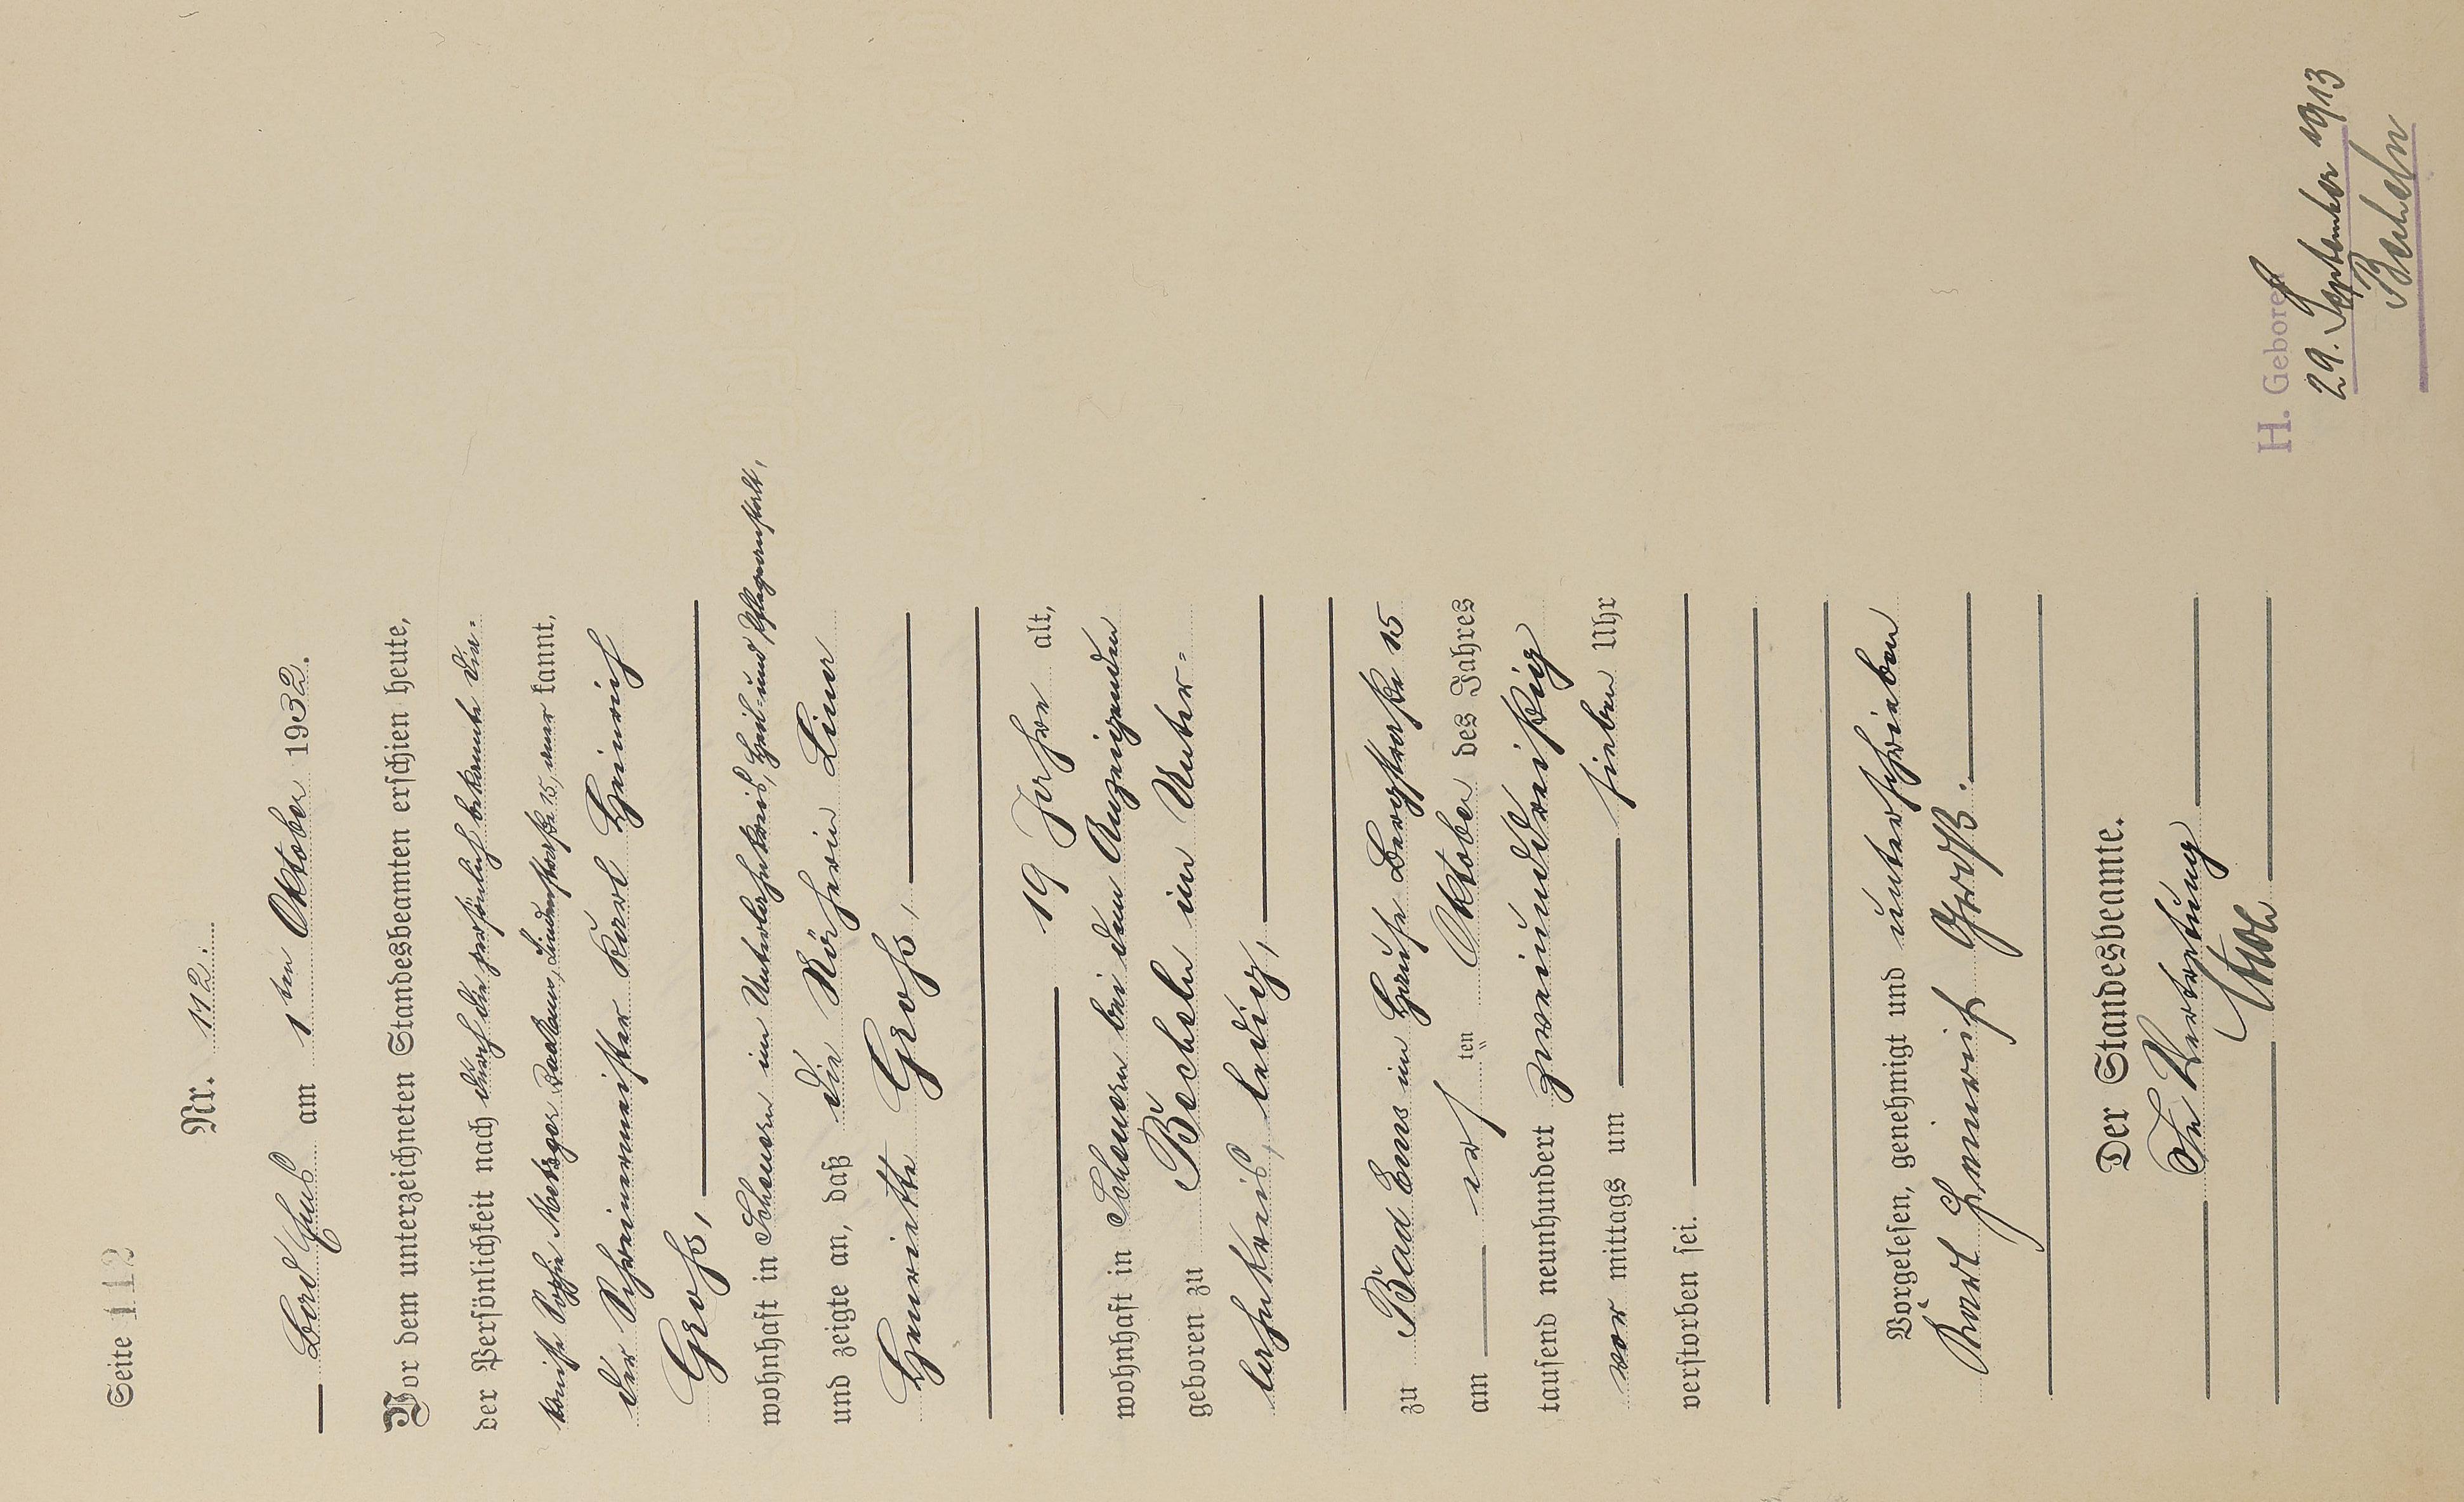 Seite 112
Nr. 112.
Bad Ems am 1ten Oktober 1932.
Vor dem unterzeichneten Standesbeamten erschien heute,
der Persönlichkeit nach durch die persönlich bekannte Dia-
konisse Sophie Metzger Bad Ems, Lindenstraße 15, aner kannt,
der Schreinermeister Karl Heinrich
Groß,
wohnhaft in Scheuern im Unterlahnkreis, Heil- und Pflegeanstalt,
und zeigte an, daß die Köchin Lina
Henriette Groß,
19 Jahre alt,
wohnhaft in Scheuern bei dem Anzeigenden
geboren zu Becheln im Unter-
lahnkreis, ledig,
zu Bad Ems im Hause Bergstraße 15
am ersten Oktober des Jahres
tausend neunhundert zweiunddreißig
vor mittags um sieben Uhr
verstorben sei.
Vorgelesen, genehmigt und unterschrieben
Karl Heinrich Groß.
Der Standesbeamte.
In Vertretung
H. Geboren
29. September 1913
Becheln